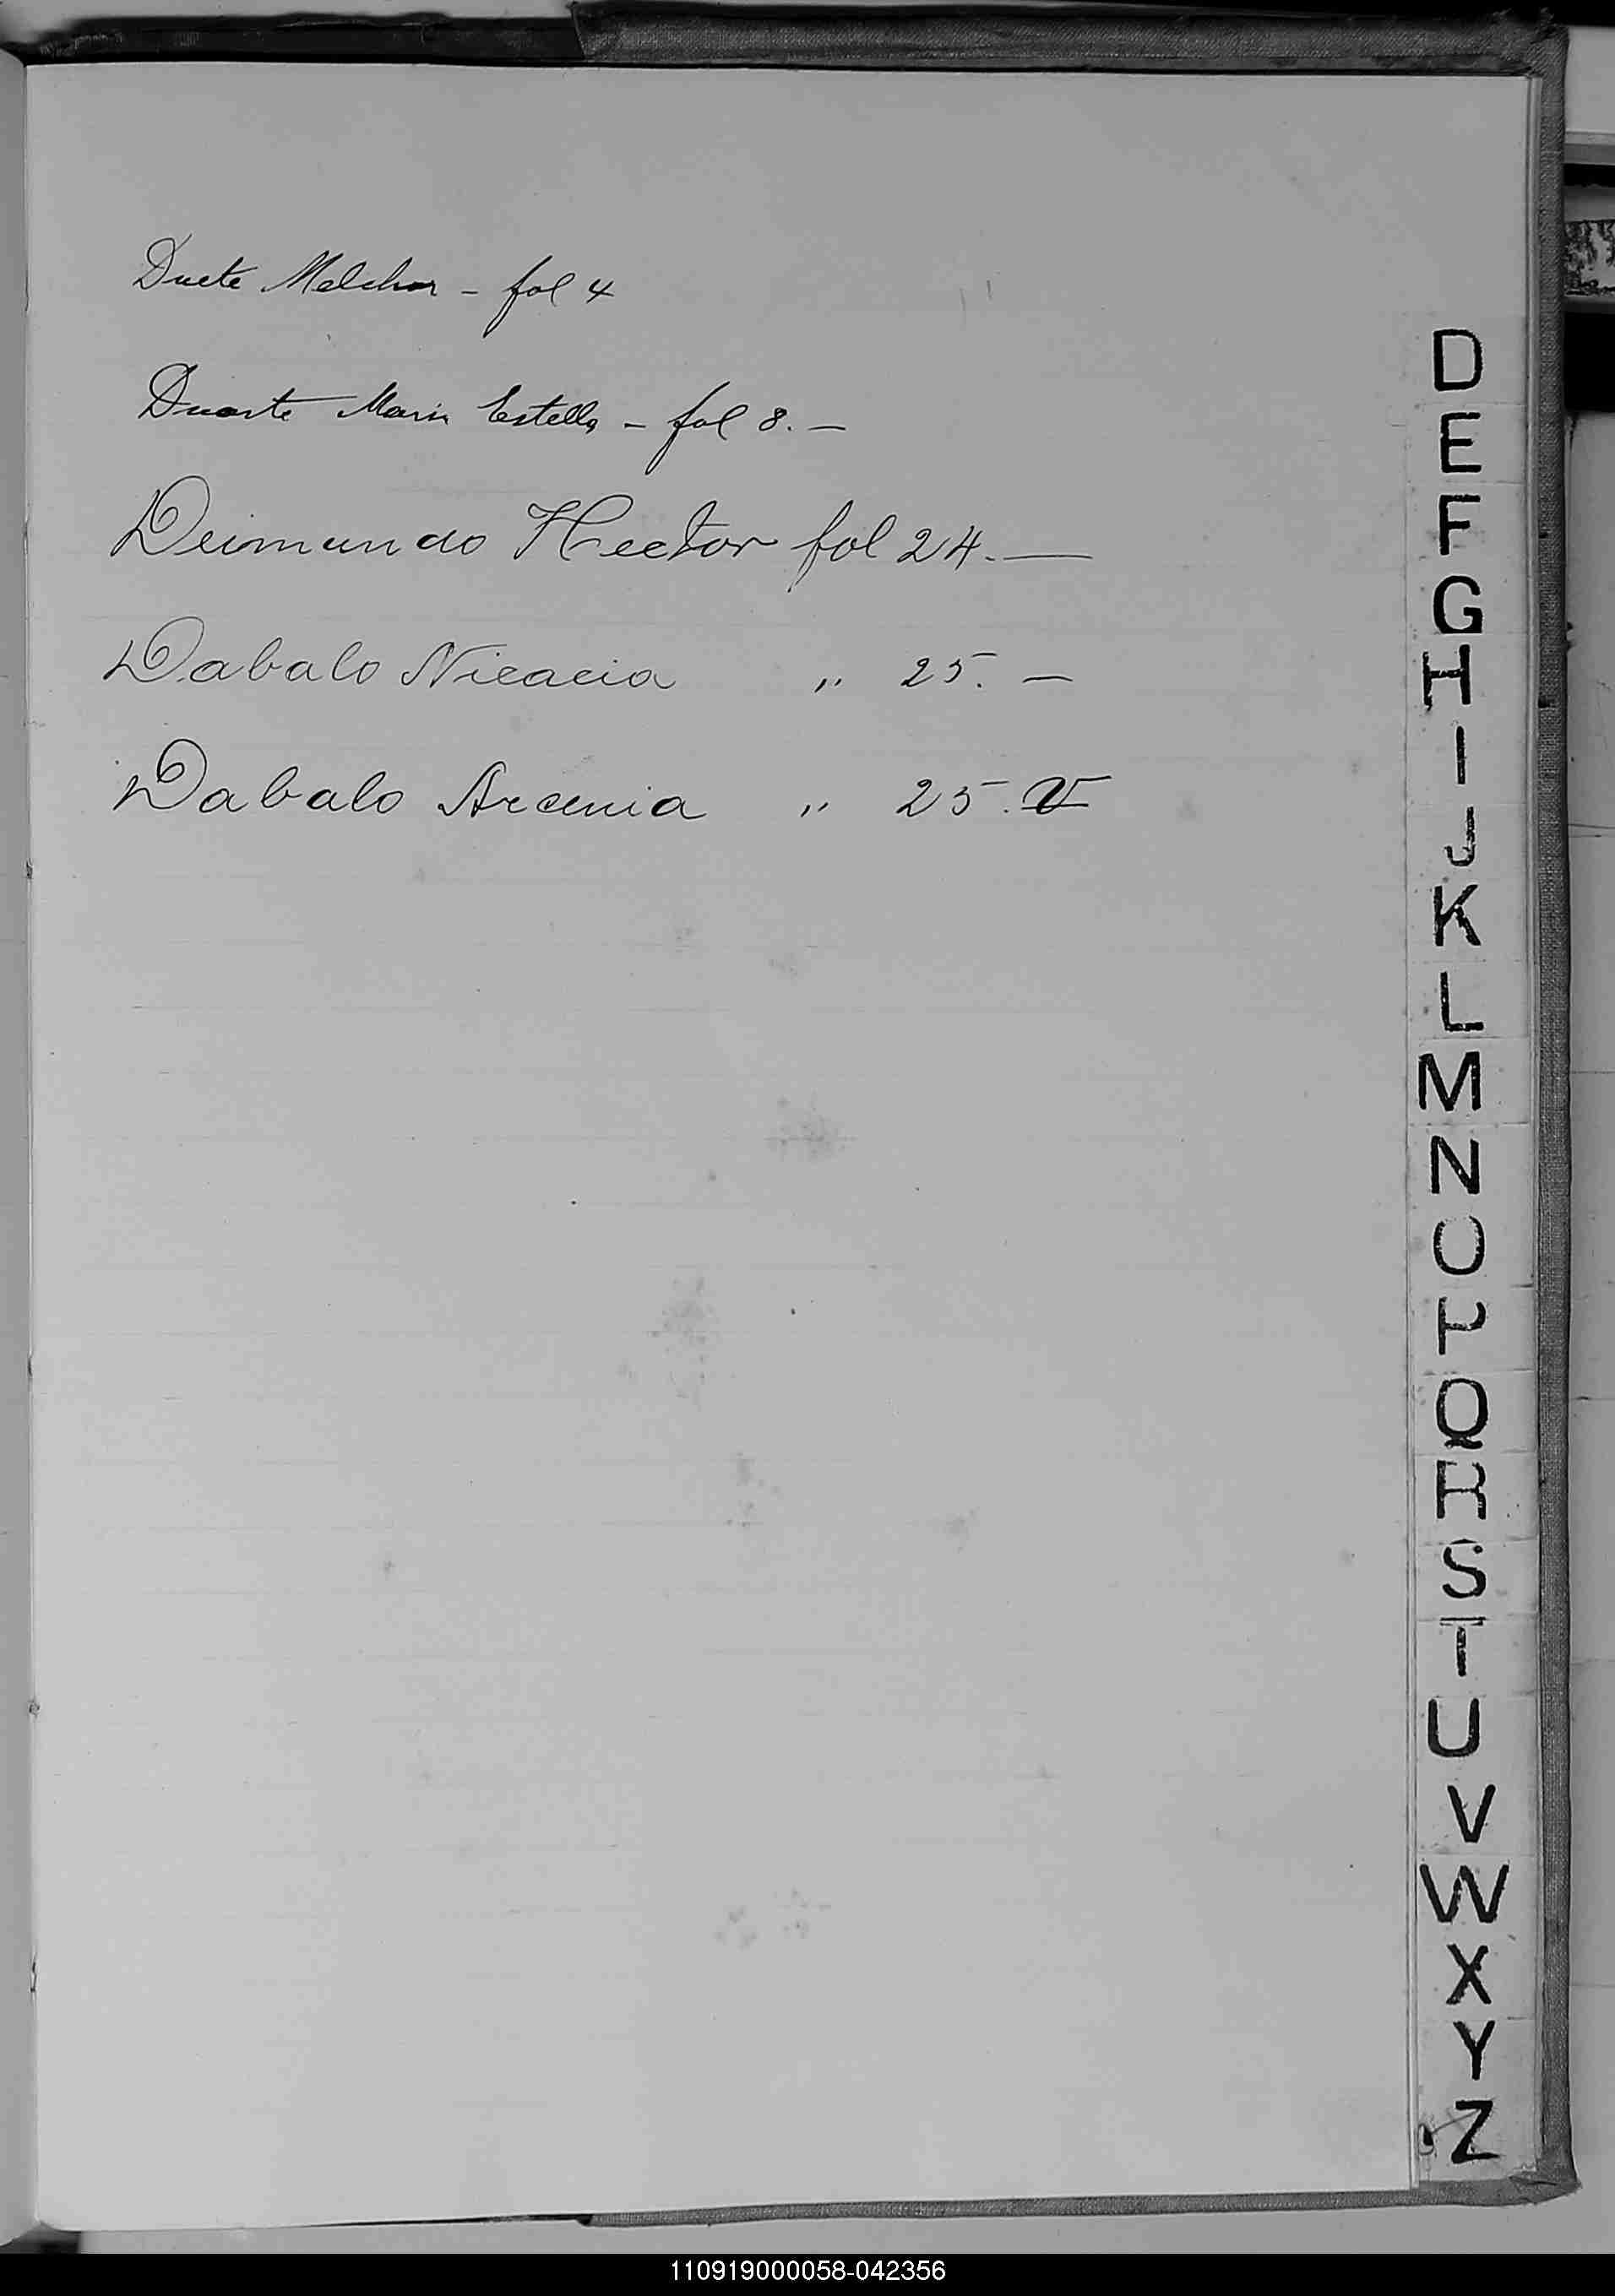 Duete Melchor - fol 4
Duarte Maria Estella - fol 8. -
Deimundo Hector fol 24. -
Dabalo Nicacia " 25. -
Dabalo Arcenia " 25. V
D
E
F
G
H
I
J
K
L
M
N
O
P
Q
R
S
T
U
V
W
X
Y
Z
110919000058-042356